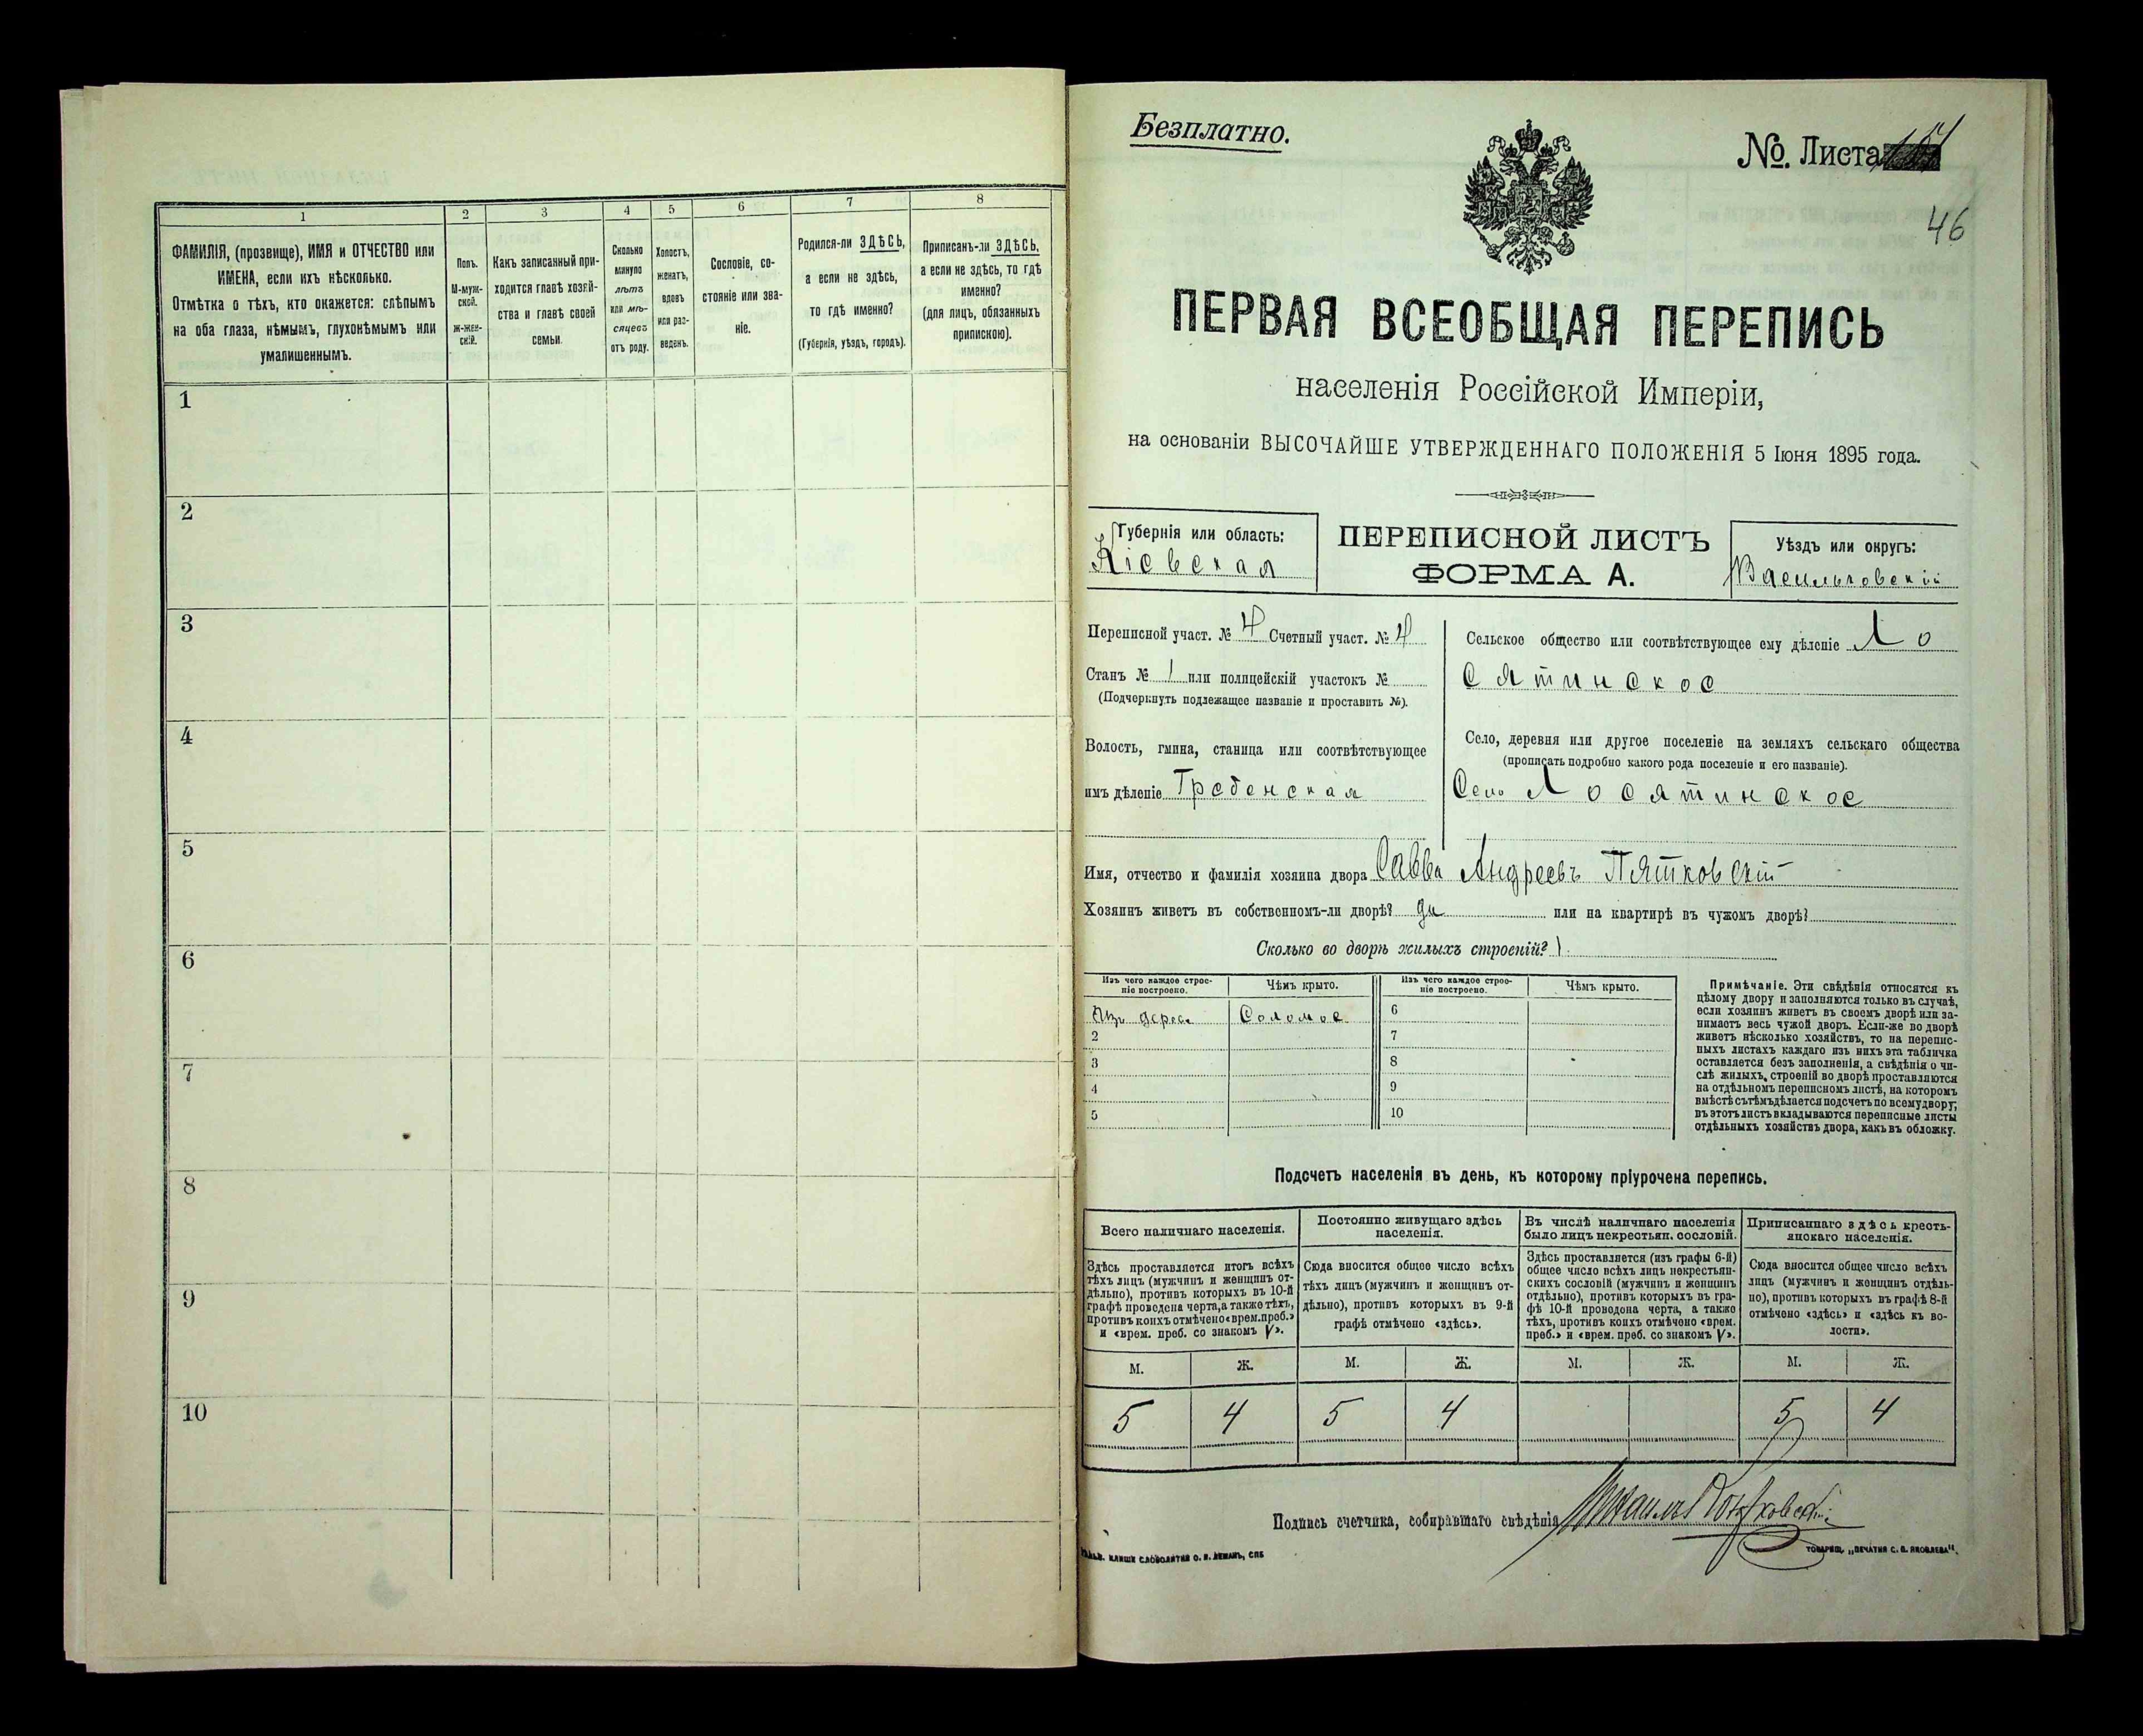 1
2
3
4
5
6
7
8
ФАМИЛІЯ, (прозвище), ИМЯ и ОТЧЕСТВО или
ИМЕНА, если ихъ нѣсколько.
Отмѣтка о тѣхъ, кто окажется: слѣпымъ
на оба глаза, нѣмымъ, глухонѣмымъ или
умалишеннымъ.
Полъ.
М-муж-
ской.
Ж-жен-
скій.
Какъ записанный при-
ходится главѣ хозяй-
ства и главѣ своей
семьи.
Сколько
минуло
лѣтъ
или мѣ-
сяцевъ
отъ роду.
Холостъ,
женатъ,
вдовъ
или раз-
веденъ.
Сословіе, со-
стояніе или зва-
ніе.
Родился-ли ЗДѢСЬ,
а если не здѣсь,
то гдѣ именно?
(Губернія, уѣздъ, городъ).
Приписанъ-ли ЗДѢСЬ,
а если не здѣсь, то гдѣ
именно?
(для лицъ, обязанныхъ
припискою).
1
2
3
4
5
6
7
8
9
10
Безплатно.
№. Листа
46
ПЕРВАЯ ВСЕОБЩАЯ ПЕРЕПИСЬ
населенія Россійской Имперіи,
на основаніи ВЫСОЧАЙШЕ УТВЕРЖДЕННАГО ПОЛОЖЕНІЯ 5 Іюня 1895 года.
Губернія или область:
Кіевская
ПЕРЕПИСНОЙ ЛИСТЪ
ФОРМА А.
Уѣздъ или округъ:
Васильковскій
Переписной участ. № 4 Счетный участ. № 4
Станъ № 1 или полицейскій участокъ №
(Подчеркнуть подлежащее названіе и проставить №).
Волость, гмина, станица или соотвѣтствующее
имъ дѣленіе Гребенская
Сельское общество или соотвѣтствующее ему дѣленіе Ло
сятинское
Село, деревня или другое поселеніе на земляхъ сельскаго общества
(прописать подробно какого рода поселеніе и его названіе).
Село Лосятинское
Имя, отчество и фамилія хозяина двора Савва Андреевъ Пятковскій
Хозяинъ живетъ въ собственномъ-ли дворѣ? да или на квартирѣ въ чужомъ дворѣ?
Сколько во дворѣ жилыхъ строеній? 1
Изъ чего каждое строе-
ніе построено.
Чѣмъ крыто.
Изъ чего каждое строе-
ніе построено.
Чѣмъ крыто.
Изъ дерева Соломое 6
2 7
3 8
4 9
5 10
Примѣчаніе. Эти свѣдѣнія относятся къ
цѣлому двору и заполняются только въ случаѣ,
если хозяинъ живетъ въ своемъ дворѣ или за-
нимаетъ весь чужой дворъ. Если-же во дворѣ
живетъ нѣсколько хозяйствъ, то на перепис-
ныхъ листахъ каждаго изъ нихъ эта табличка
оставляется безъ заполненія, а свѣдѣнія о чи-
слѣ жилыхъ строеній во дворѣ проставляются
на отдѣльномъ переписномъ листѣ, на которомъ
вмѣстѣ съ тѣмъ дѣлается подсчетъ по всему двору;
въ этотъ листъ вкладываются переписные листы
отдѣльныхъ хозяйствъ двора, какъ въ обложку.
Подсчетъ населенія въ день, къ которому пріурочена перепись.
Всего наличнаго населенія.
Постоянно живущаго здѣсь
населенія.
Въ числѣ наличнаго населенія
было лицъ некрестьян. сословій.
Приписаннаго здѣсь кресть-
янскаго населенія.
Здѣсь проставляется итогъ всѣхъ
тѣхъ лицъ (мужчинъ и женщинъ от-
дѣльно), противъ которыхъ въ 10-й
графѣ проведена черта, а также тѣхъ,
противъ коихъ отмѣчено «врем. преб.»
и «врем. преб. со знакомъ V».
Сюда вносится общее число всѣхъ
тѣхъ лицъ (мужчинъ и женщинъ от-
дѣльно), противъ которыхъ въ 9-й
графѣ отмѣчено «здѣсь».
Здѣсь проставляется (изъ графы 6-й)
общее число всѣхъ лицъ некрестьян-
скихъ сословій (мужчинъ и женщинъ
отдѣльно), противъ которыхъ въ гра-
фѣ 10-й проведена черта, а также
тѣхъ, противъ коихъ отмѣчено «врем.
преб.» и «врем. преб. со знакомъ V».
Сюда вносится общее число всѣхъ
лицъ (мужчинъ и женщинъ отдѣль-
но), противъ которыхъ въ графѣ 8-й
отмѣчено «здѣсь» и «здѣсь въ во-
лости».
М. Ж. М. Ж. М. Ж. М. Ж.
5 4 5 4 5 4
Подпись счетчика, собиравшаго свѣдѣнія Михаилъ
КЛИШЕ СЛОВОЛИТНИ О. И. ЛЕМАНЪ, СПБ
ТОВАРИЩ. „ПЕЧАТНЯ С. П. ЯКОВЛЕВА".